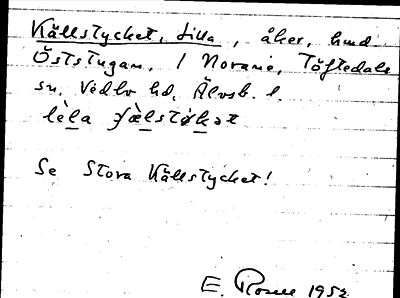 Källstycket, Lilla, åker, hmd
Öststugan, 1 Norane, Töftedals
sn, Vedbo hd, Älvsb. l.
lèla
Se Stora Källstycket!
E. Rosell 1952